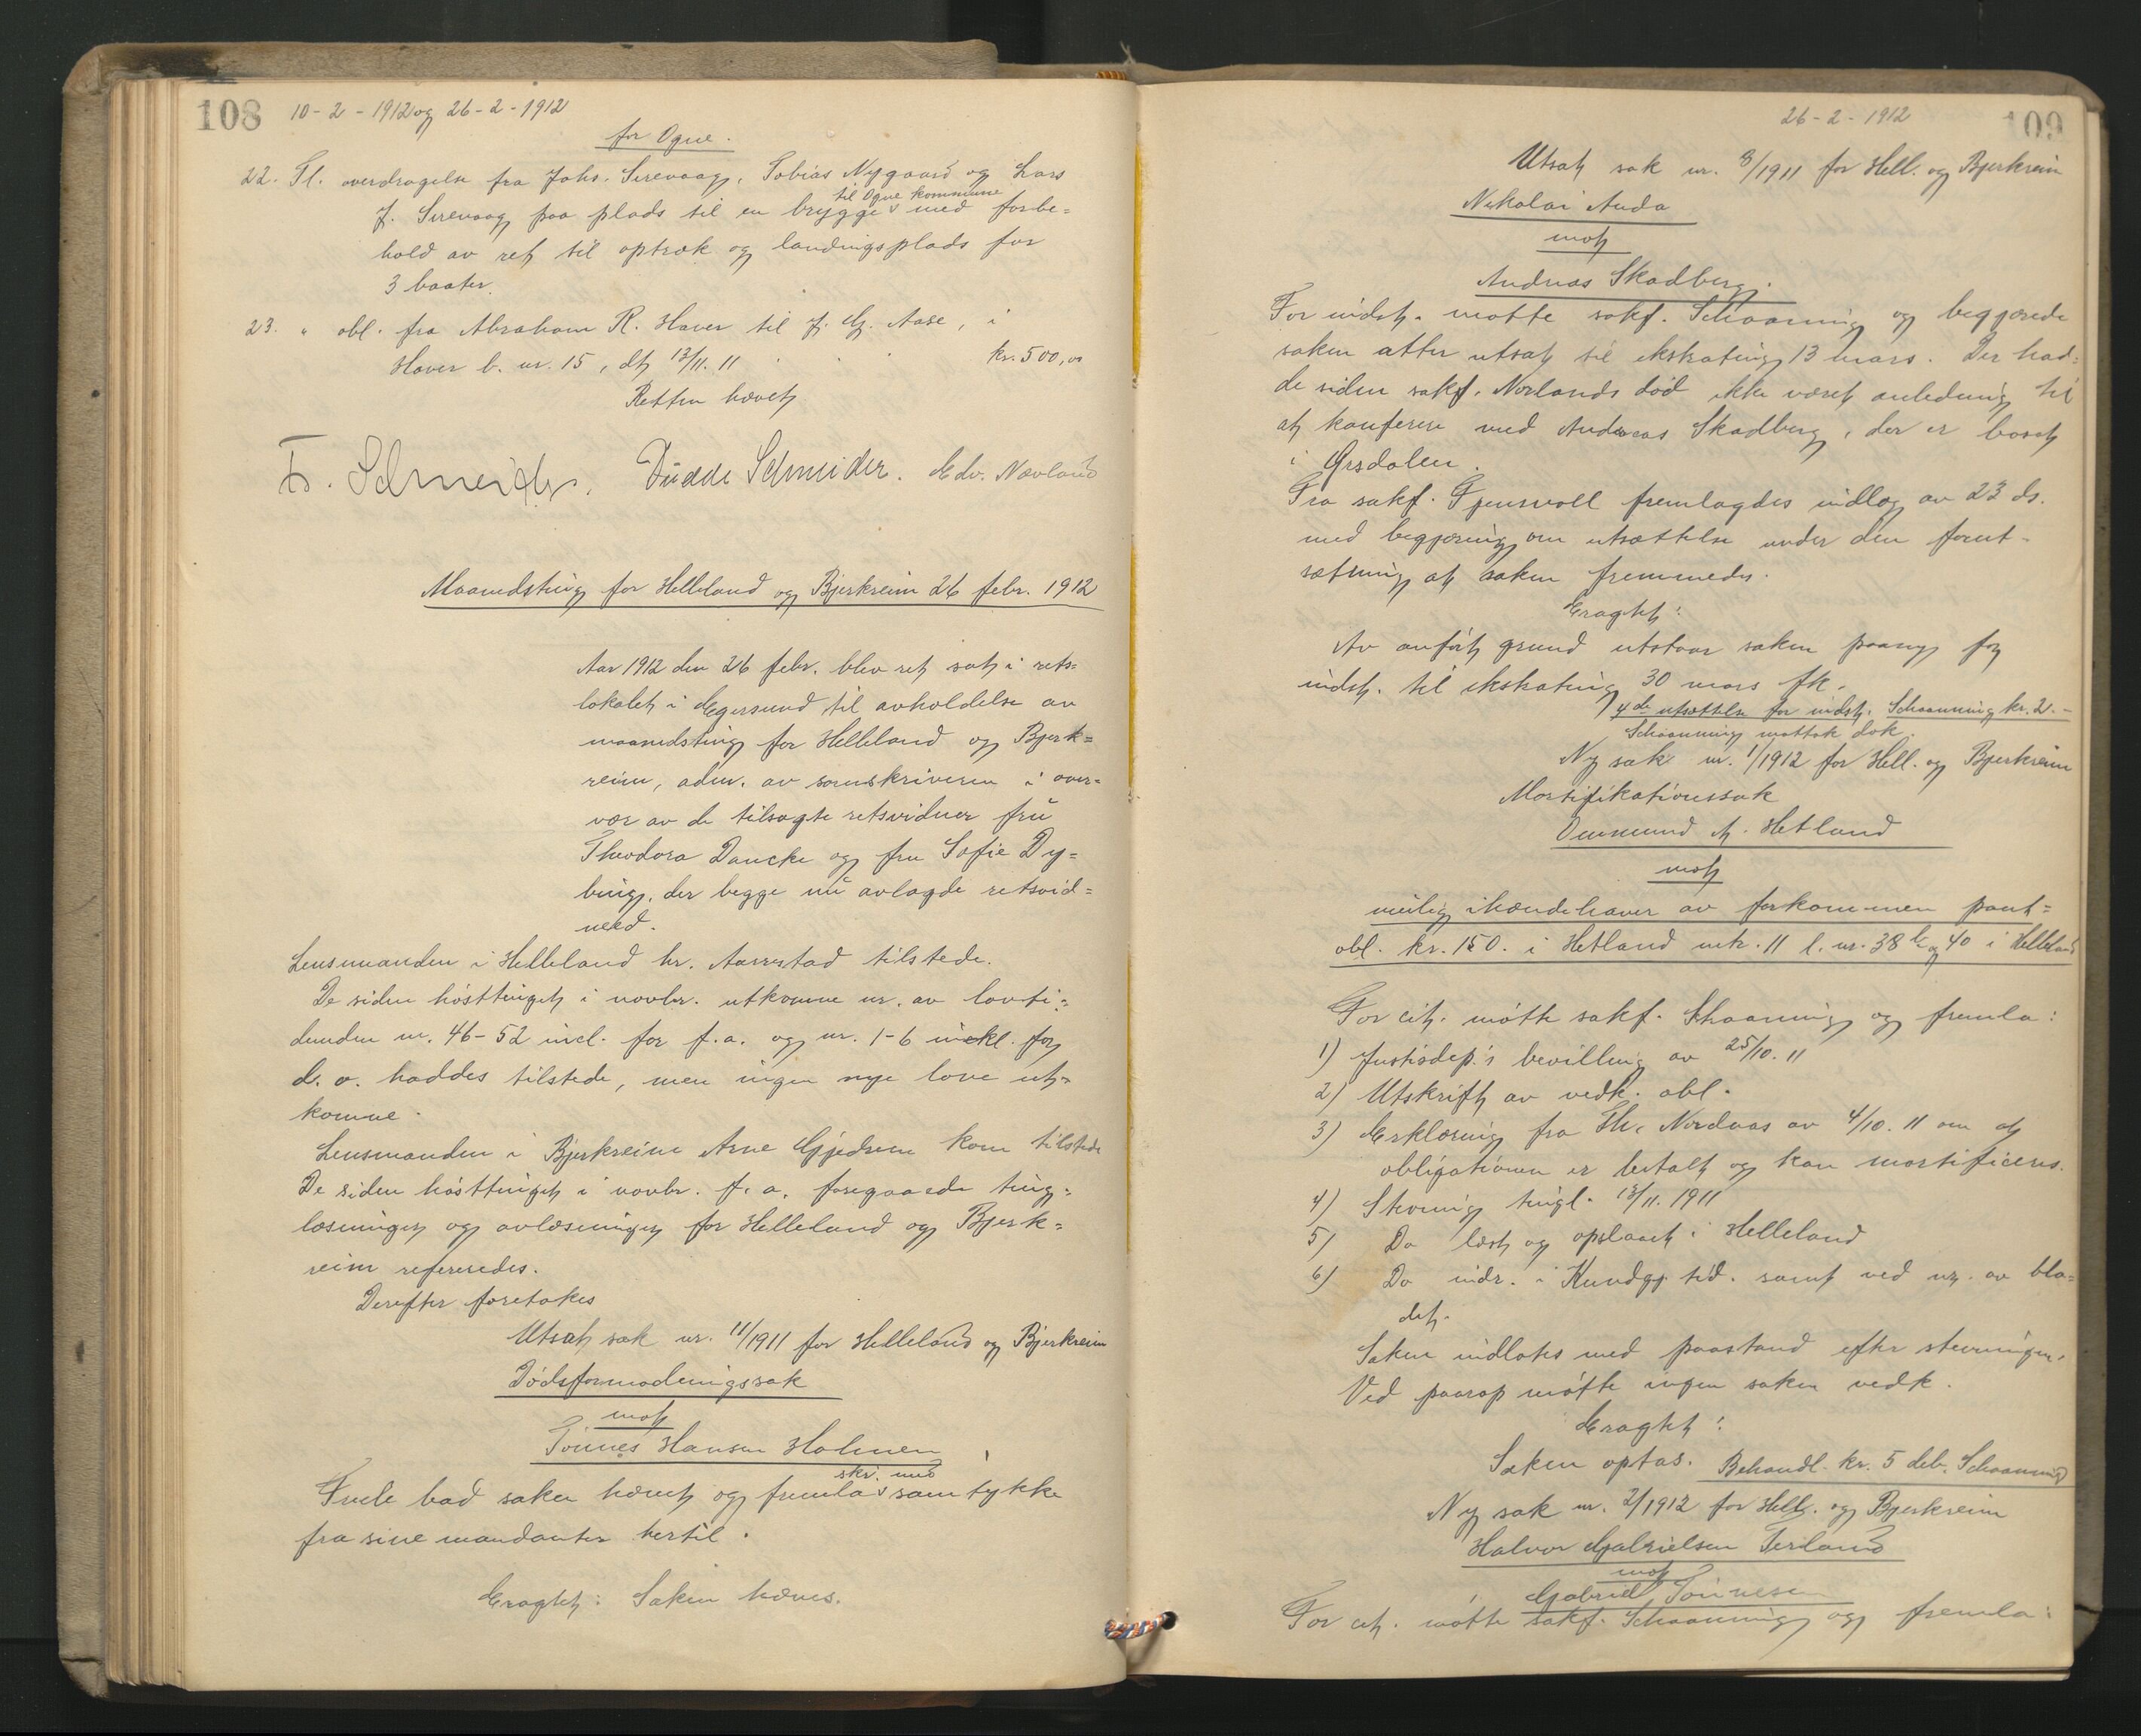 108 10-2-1912 og 26-2-1912
for Ogne.
22. Tl. overdragelse fra Johs. Sirevaag, Tobias Nygaard og Lars
til Ogne kommune
J. Sirevaag paa plads til en brygge med forbe=
hold av ret til optræk og landingsplads for
3 baater.
23. " obl. fra Abraham R. Haver til J. G. Aase, i
Haver b. nr. 15, dt 13/11. 11 . . . kr. 500,00
Retten hævet
Fr. Schneider. Didde Schneider. Edv. Nævland
Maanedsting for Helleland og Bjerkreim 26 febr. 1912
Aar 1912 den 26 febr. blev ret sat i rets=
lokalet i Egersund til avholdelse av
maanedsting for Helleland og Bjerk=
reim, adm. av sorenskriveren i over=
vær av de tilsagte retsvidner fru
Theodora Dancke og fru Sofie Dy=
bing, der begge nu avlagde retsvid=
need.
Lensmanden i Helleland hr. Aarrestad tilstede.
De siden høsttinget i novbr. utkomne nr. av lovti=
denden nr. 46-52 incl. for f.a. og nr. 1-6 inckl. for
d. a. haddes tilstede, men ingen nye love ut=
komne.
Lensmanden i Bjerkreim Arne Gjedrem kom tilstede
De siden høsttinget i novbr. f. a. foregaaede ting=
læsninger og avlæsninger for Helleland og Bjerk=
reim refereredes.
Derefter foretokes
Utsat sak nr. 11/1911 for Helleland og Bjerkreim
Dødsformodningssak
mot
Tønnes Hansen Holmen
skr. med
Tvete bad saken hævet og fremla samtykke
fra sine mandanter hertil.
Eragtet: Saken hæves.
26-2-1912 109
Utsat sak nr. 8/1911 for Hell. og Bjerkreim
Nikolai Auda
mot
Andreas Skadberg.
For indst. møtte sakf. Schaanning og begjærede
saken atter utsat til ekstrating 13 mars. Der had=
de siden sakf. Norlands død ikke været anledning til
at konferere med Andreas Skadberg, der er bosat
i Ørsdalen.
Fra sakf. Tjensvoll fremlagdes indlæg av 23 ds.
med begjæring om utsættelse under den forut=
sætning at saken fremmedes.
Eragtet:
Av anført grund utstaar saken paany for
indst. til ekstrating 30 mars fk.
4de utsættelse for indst. Schaanning kr. 2.-
Schaanning mottok dok.
Ny sak nr. 1/1912 for Hell. og Bjerkreim
Mortifikationssak
Ommund A. Hetland
mot
mulig ihændehaver av forkommen pant=
obl. kr. 150. i Hetland mtr. 11 l. nr. 38 b og 40 i Helleland
For cit. møtte sakf. Schaanning og fremla:
1) Justisdep.'s bevilling av 25/10. 11
2) Utskrift av vedk. obl.
3) Erklæring fra Th. Nordaas av 4/10. 11 om at
obligationen er betalt og kan mortificeres.
4) Stevning tingl. 13/11. 1911
5) Do læst og opslaaet i Helleland
6) Do indr. i Kundgj. tid. samt ved nr. av bla=
det.
Saken indlotes med paastand efter stevningen.
Ved paarop møtte ingen saken vedk.
Eragtet:
Saken optas. Behandl. kr. 5 deb. Schaanning
Ny sak nr. 2/1912 for Hell. og Bjerkreim
Halvor Gabrielsen Terland
mot
Gabriel Tønnesen
For cit. møtte sakf. Schaanning og fremla: